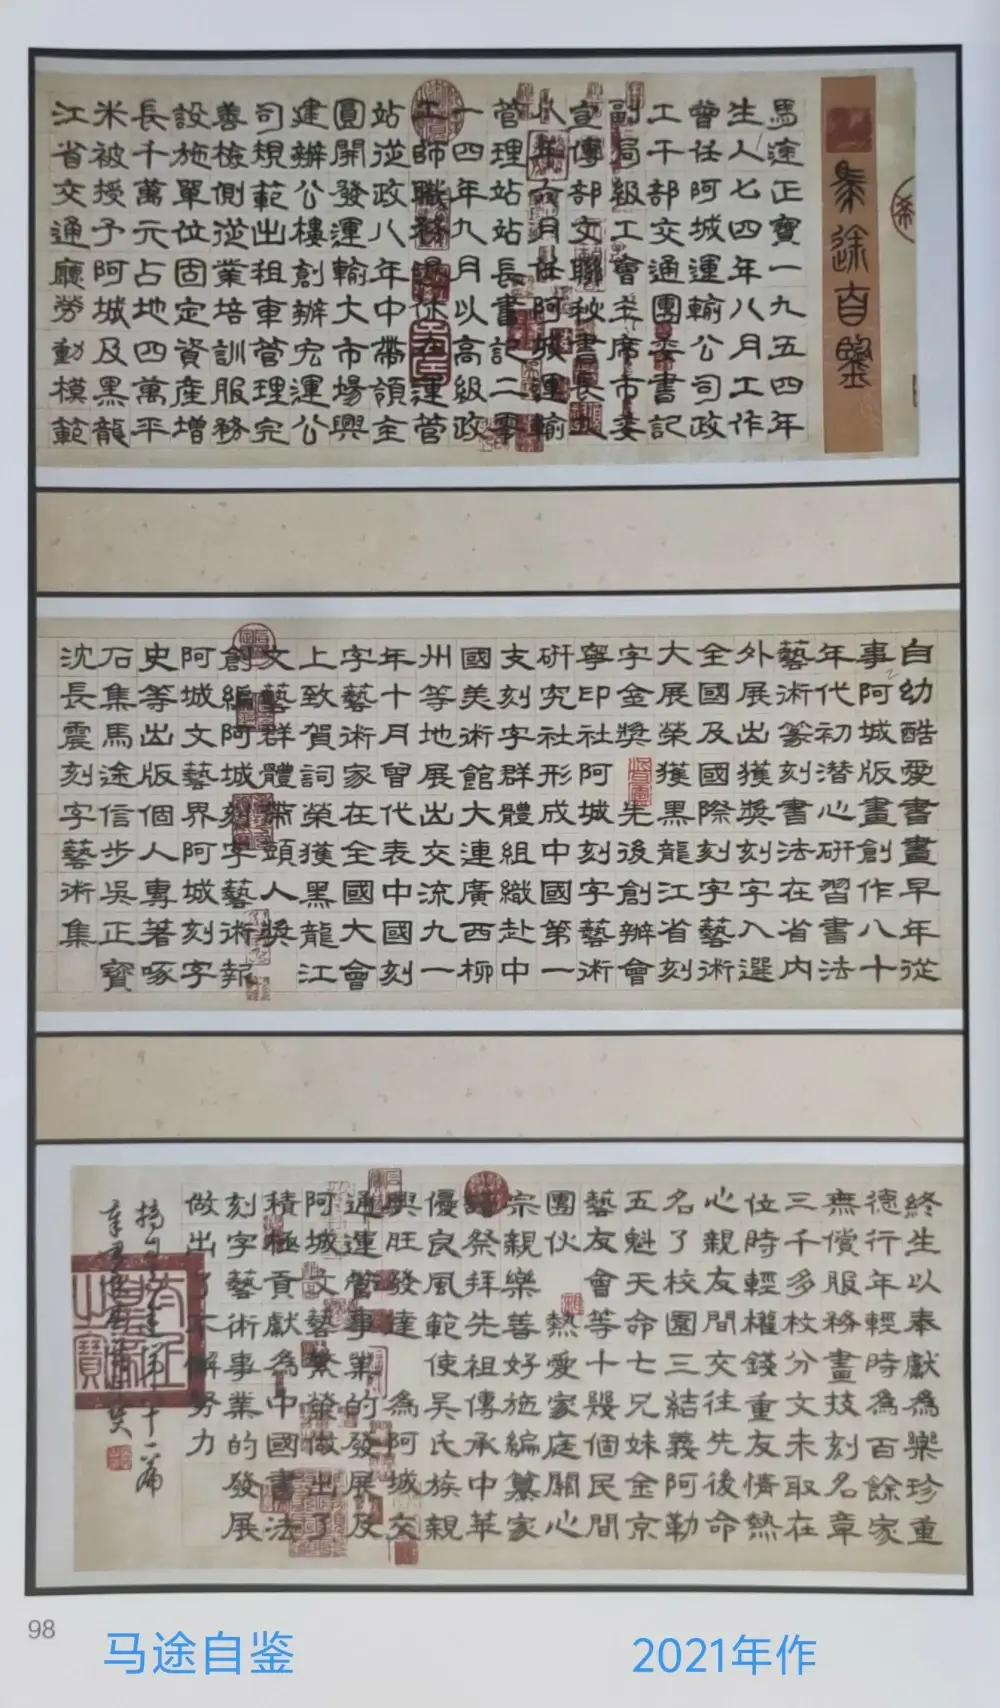 馬途自鑒
馬途正寶一九五四年
生人七四年八月工作
曾任阿城運輸公司政
工干部交通團委書記
副局級工會主席市委
宣傳部文聯秘書長
年六月任阿城運輸
管理站站長書記二零
一四年九月以高級政
工師職務退休在運管
站從政八年中帶領全
圓開發運輸大市場興
建辦公樓創辦宏運公
司規範出租車管理完
善檢側從業培訓服務
設施單位固定資産增
長千萬元占地四萬平
米被授予阿城及黑龍
江省交通廳勞動模範
自幼酷愛書畫早年從
事阿城版畫創作八十
年代初潛心研習書法
藝術篆刻書法在省内
外展出獲獎刻字入選
全國及國際刻字藝術
大展榮獲黑龍江省刻
字金獎 先後創辦會
寧印社阿城刻字藝術
研究社形成中國第一
支刻字群體組織赴中
國美術館大連廣西柳
州等地展出交流九一
年十月曾代表中國刻
字藝術家在全國大會
上致賀詞榮獲黑龍江
文藝群體帶頭人獎
創編阿城刻字藝術報
阿城文藝界阿城刻字
史等出版個人專著啄
石集馬途信步吳正寶
沈長震刻字藝術集
終生以奉獻為樂珍重
德行年輕時為百餘家
無償服務畫技刻名章
三千多枚分文未取在
位時輕權錢重友情熱
心親友間交往先後命
名了校園三結義阿勒
五魁天命七兄妹金京
藝友會等十幾個民間
團伙 熱愛家庭關心
宗親樂善好施編纂家
譜祭拜先祖傳承中華
優良風範使吳氏族親
興旺發達 為阿城交
通運管事業的發展及
阿城文藝繁榮做出了
積極貢獻為中國書法
刻字藝術事業的發展
做出了不懈努力
98
马途自鉴
2021年作